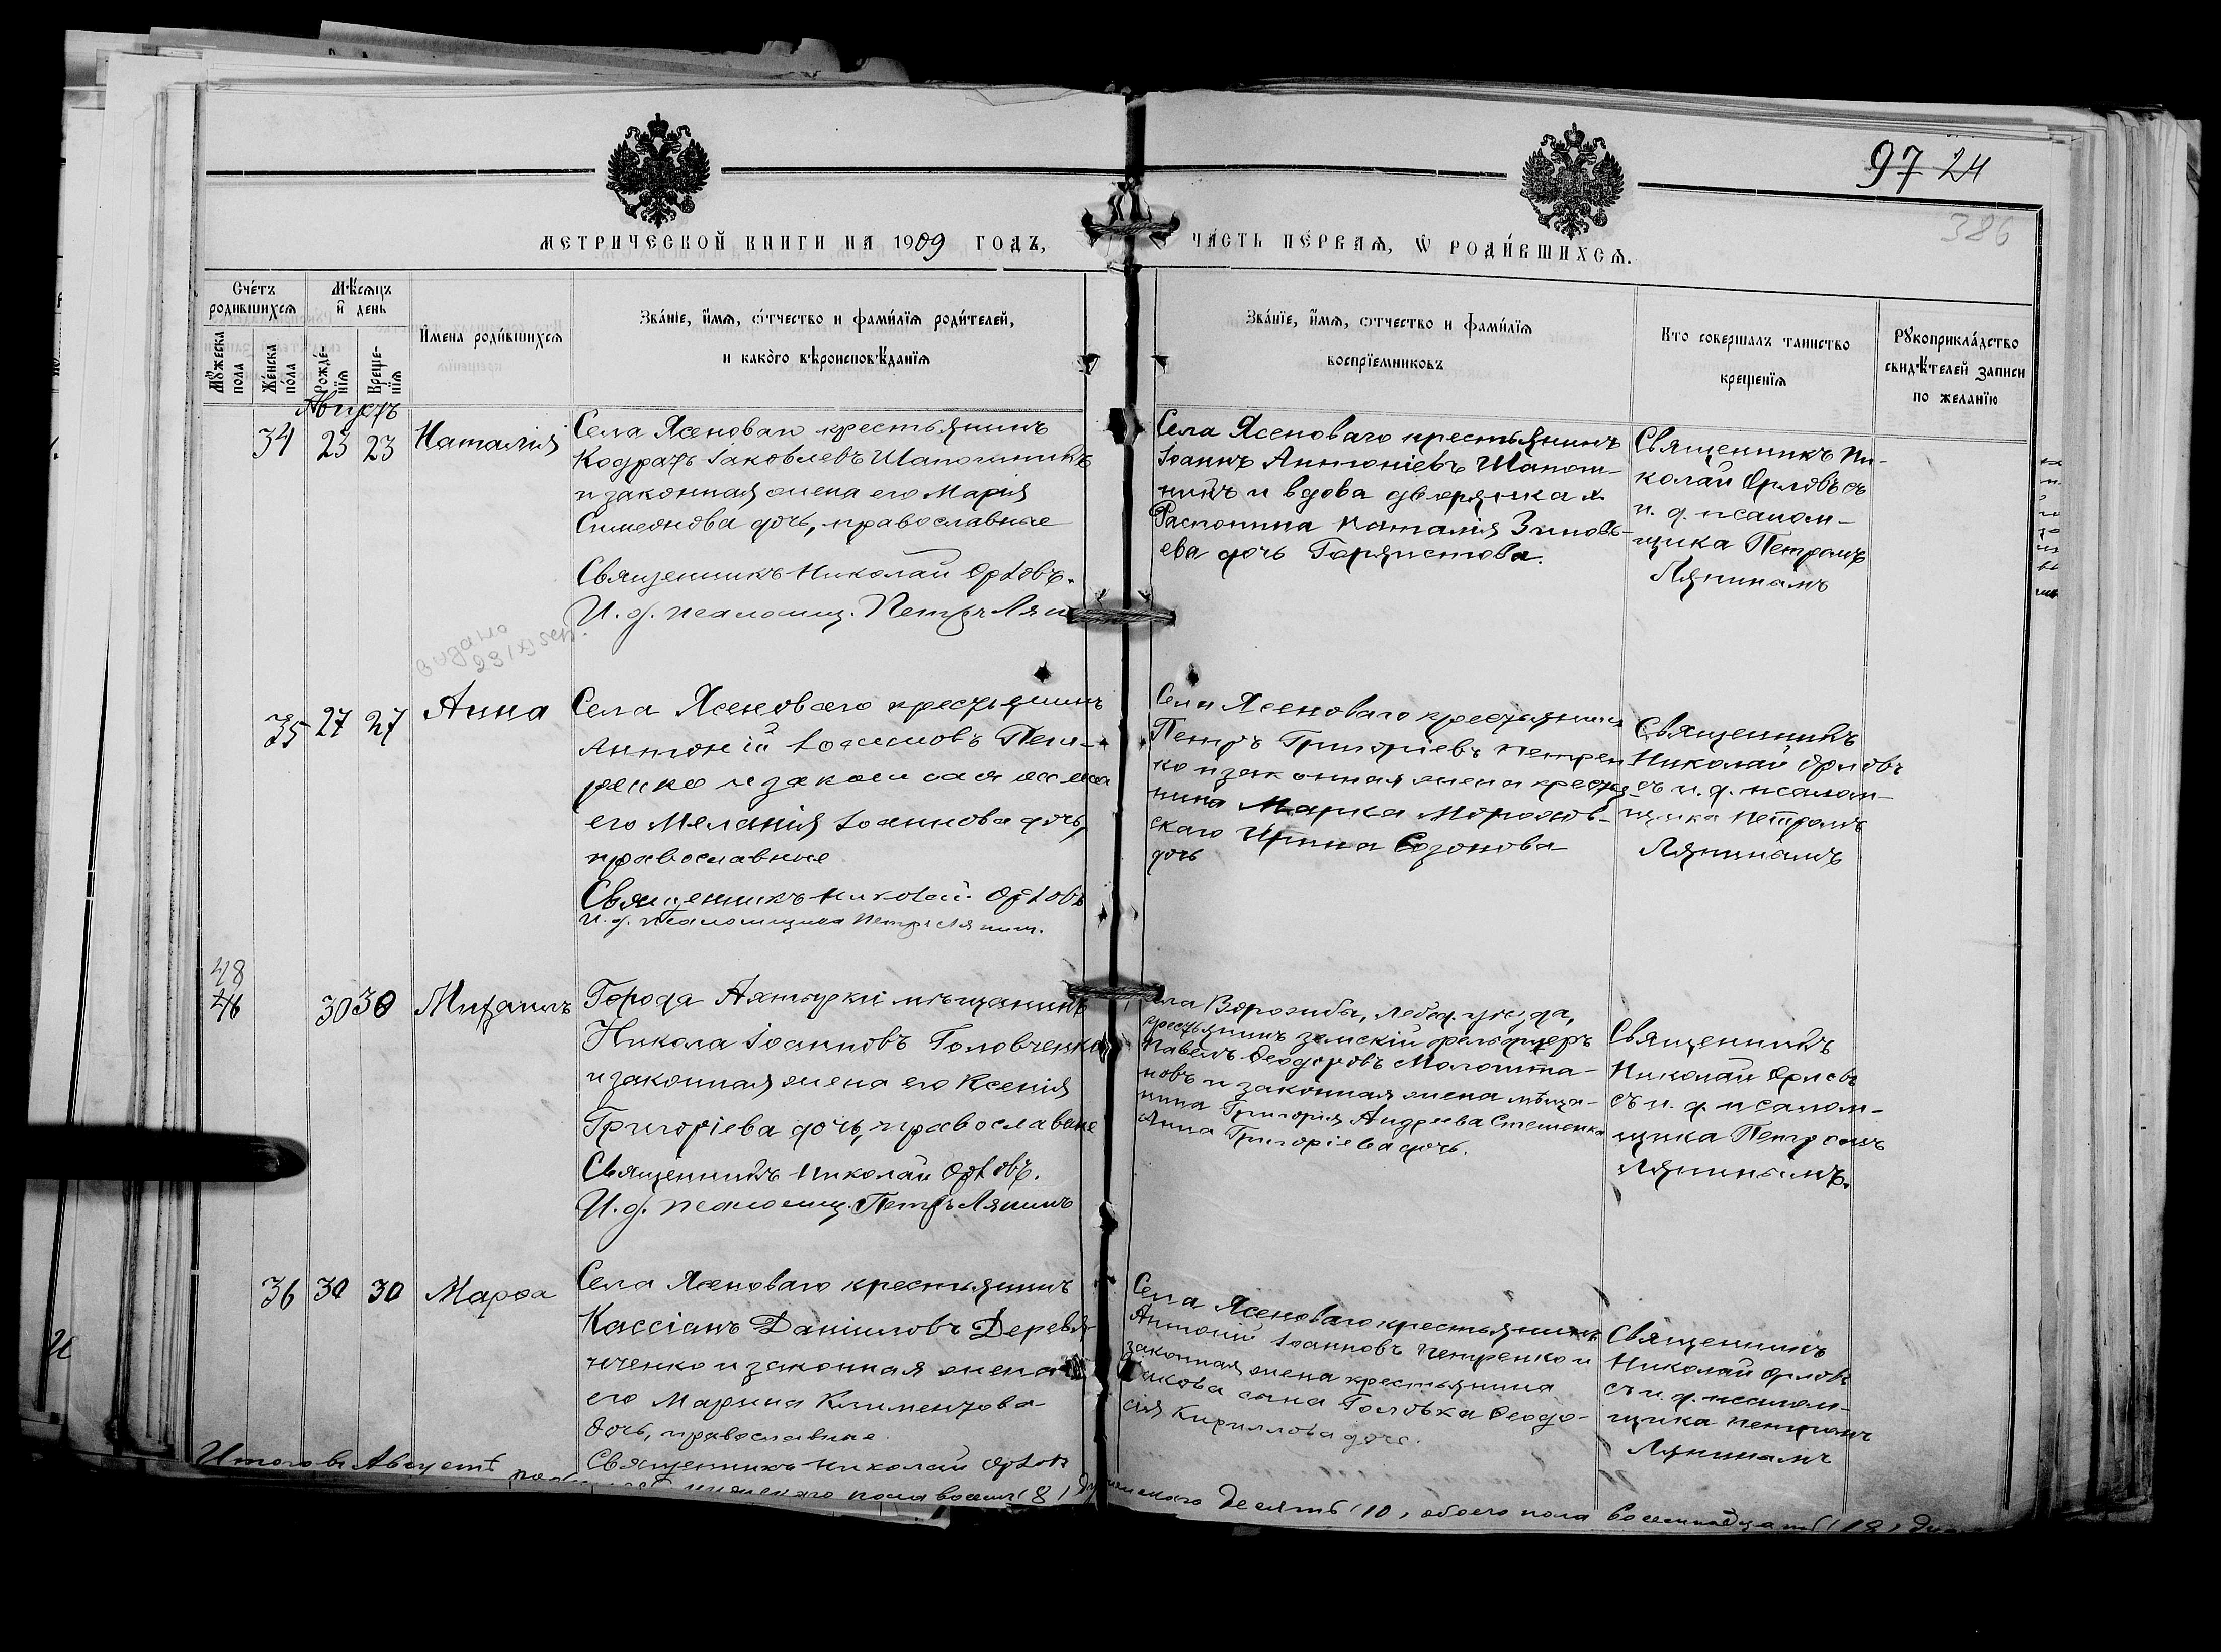 97 24
386
МЕТРИЧЕСКОЙ КНИГИ НА 1909 ГОДЪ,
ЧА́СТЬ ПЕ́РВАѦ, Ѡ҆ РОДИ́ВШИХСѦ.
Сче́тъ родившихсѧ
Мѣ́сѧцъ и҆ день
Мꙋ́жеска пола
Же́нска по́ла
Рожде́-нїѧ
Креще-нїѧ
И҆мена роди́вшихсѧ
Зва́нїе, и҆́мѧ, ѻ҆́тчество и фами́лїѧ роди́телей,
и како́го вѣроисповѣ́данїѧ
Зва́нїе, и҆́мѧ, ѻ҆тчество и фами́лїѧ
воспрїемниковъ
Кто совершалъ таинство
крещенїѧ
Рꙋкоприкла́дство
свидѣ́телей записи
по желанїю
Августъ
34 23 23 Наталія
Села Ясеноваго крестьянинъ
Кодратъ Іаковлевъ Шапошникъ
и законная жена его Марія
Симеонова дочь, православные
Священникъ Николай Орловъ.
И. д. псаломщ. Петръ Ляп
Села Ясеноваго крестьянинъ
Іоаннъ Антоніевъ Шапош-
никъ и вдова дворянка х.
Распопина Наталія Зиновь-
ева дочь Горяистова.
Священникъ Ни-
колай Орловъ съ
и. д. псалом-
щика Петромъ
Ляпинымъ
видано
23/XI
35 27 27 Анна
Села Ясеноваго крестьянинъ
Антоній Іоанновъ Пет-
ренко и законная жена
его Меланія Іоаннова дочь,
православные
Священникъ Николай Орловъ
и. д. псаломщика Петръ Ляпин.
Села Ясеноваго крестьянинъ
Петръ Григоріевъ Петрен
ко и законная жена крестья-
нина Марка Мороховъ-
скаго Ирина Созонова
дочь
Священникъ
Николай Орловъ
съ и. д. псалом-
щика Петромъ
Ляпинымъ
48
46 30 30 Михаилъ
Города Ахтырки мѣщанинъ
Никола Іоанновъ Головченко
и законная жена его Ксенія
Григоріева дочь, православные
Священникъ Николай Орловъ.
И. д. псаломщ. Петръ Ляпинъ
Села Ворожба, Лебед. уѣзда,
крестьянинъ земскій фельдшеръ
Павелъ Ѳеодоровъ Молошта-
новъ и законная жена мѣща-
нина Григорія Андреева Стешенка
Анна Григоріева дочь.
Священникъ
Николай Орловъ
съ и. д. псалом-
щика Петромъ
Ляпинымъ.
36 30 30 Марѳа
Села Ясеноваго крестьянинъ
Кассіанъ Даніиловъ Деревя
нченко и законная жена
его Марина Климентова
дочь, православные.
Священникъ Николай Орловъ
Села Ясеноваго крестьянинъ
Антоній Іоанновъ Петренко и
законная жена крестьянина
Іакова сына Головка Ѳеодо-
сія Кириллова дочь.
Священникъ
Николай Орловъ
съ и. д. псалом-
щика Петромъ
Ляпинымъ
Итого въ Августѣ мужескаго пола восемь (8) женскаго десять (10, обоего пола восемнадцать (18)